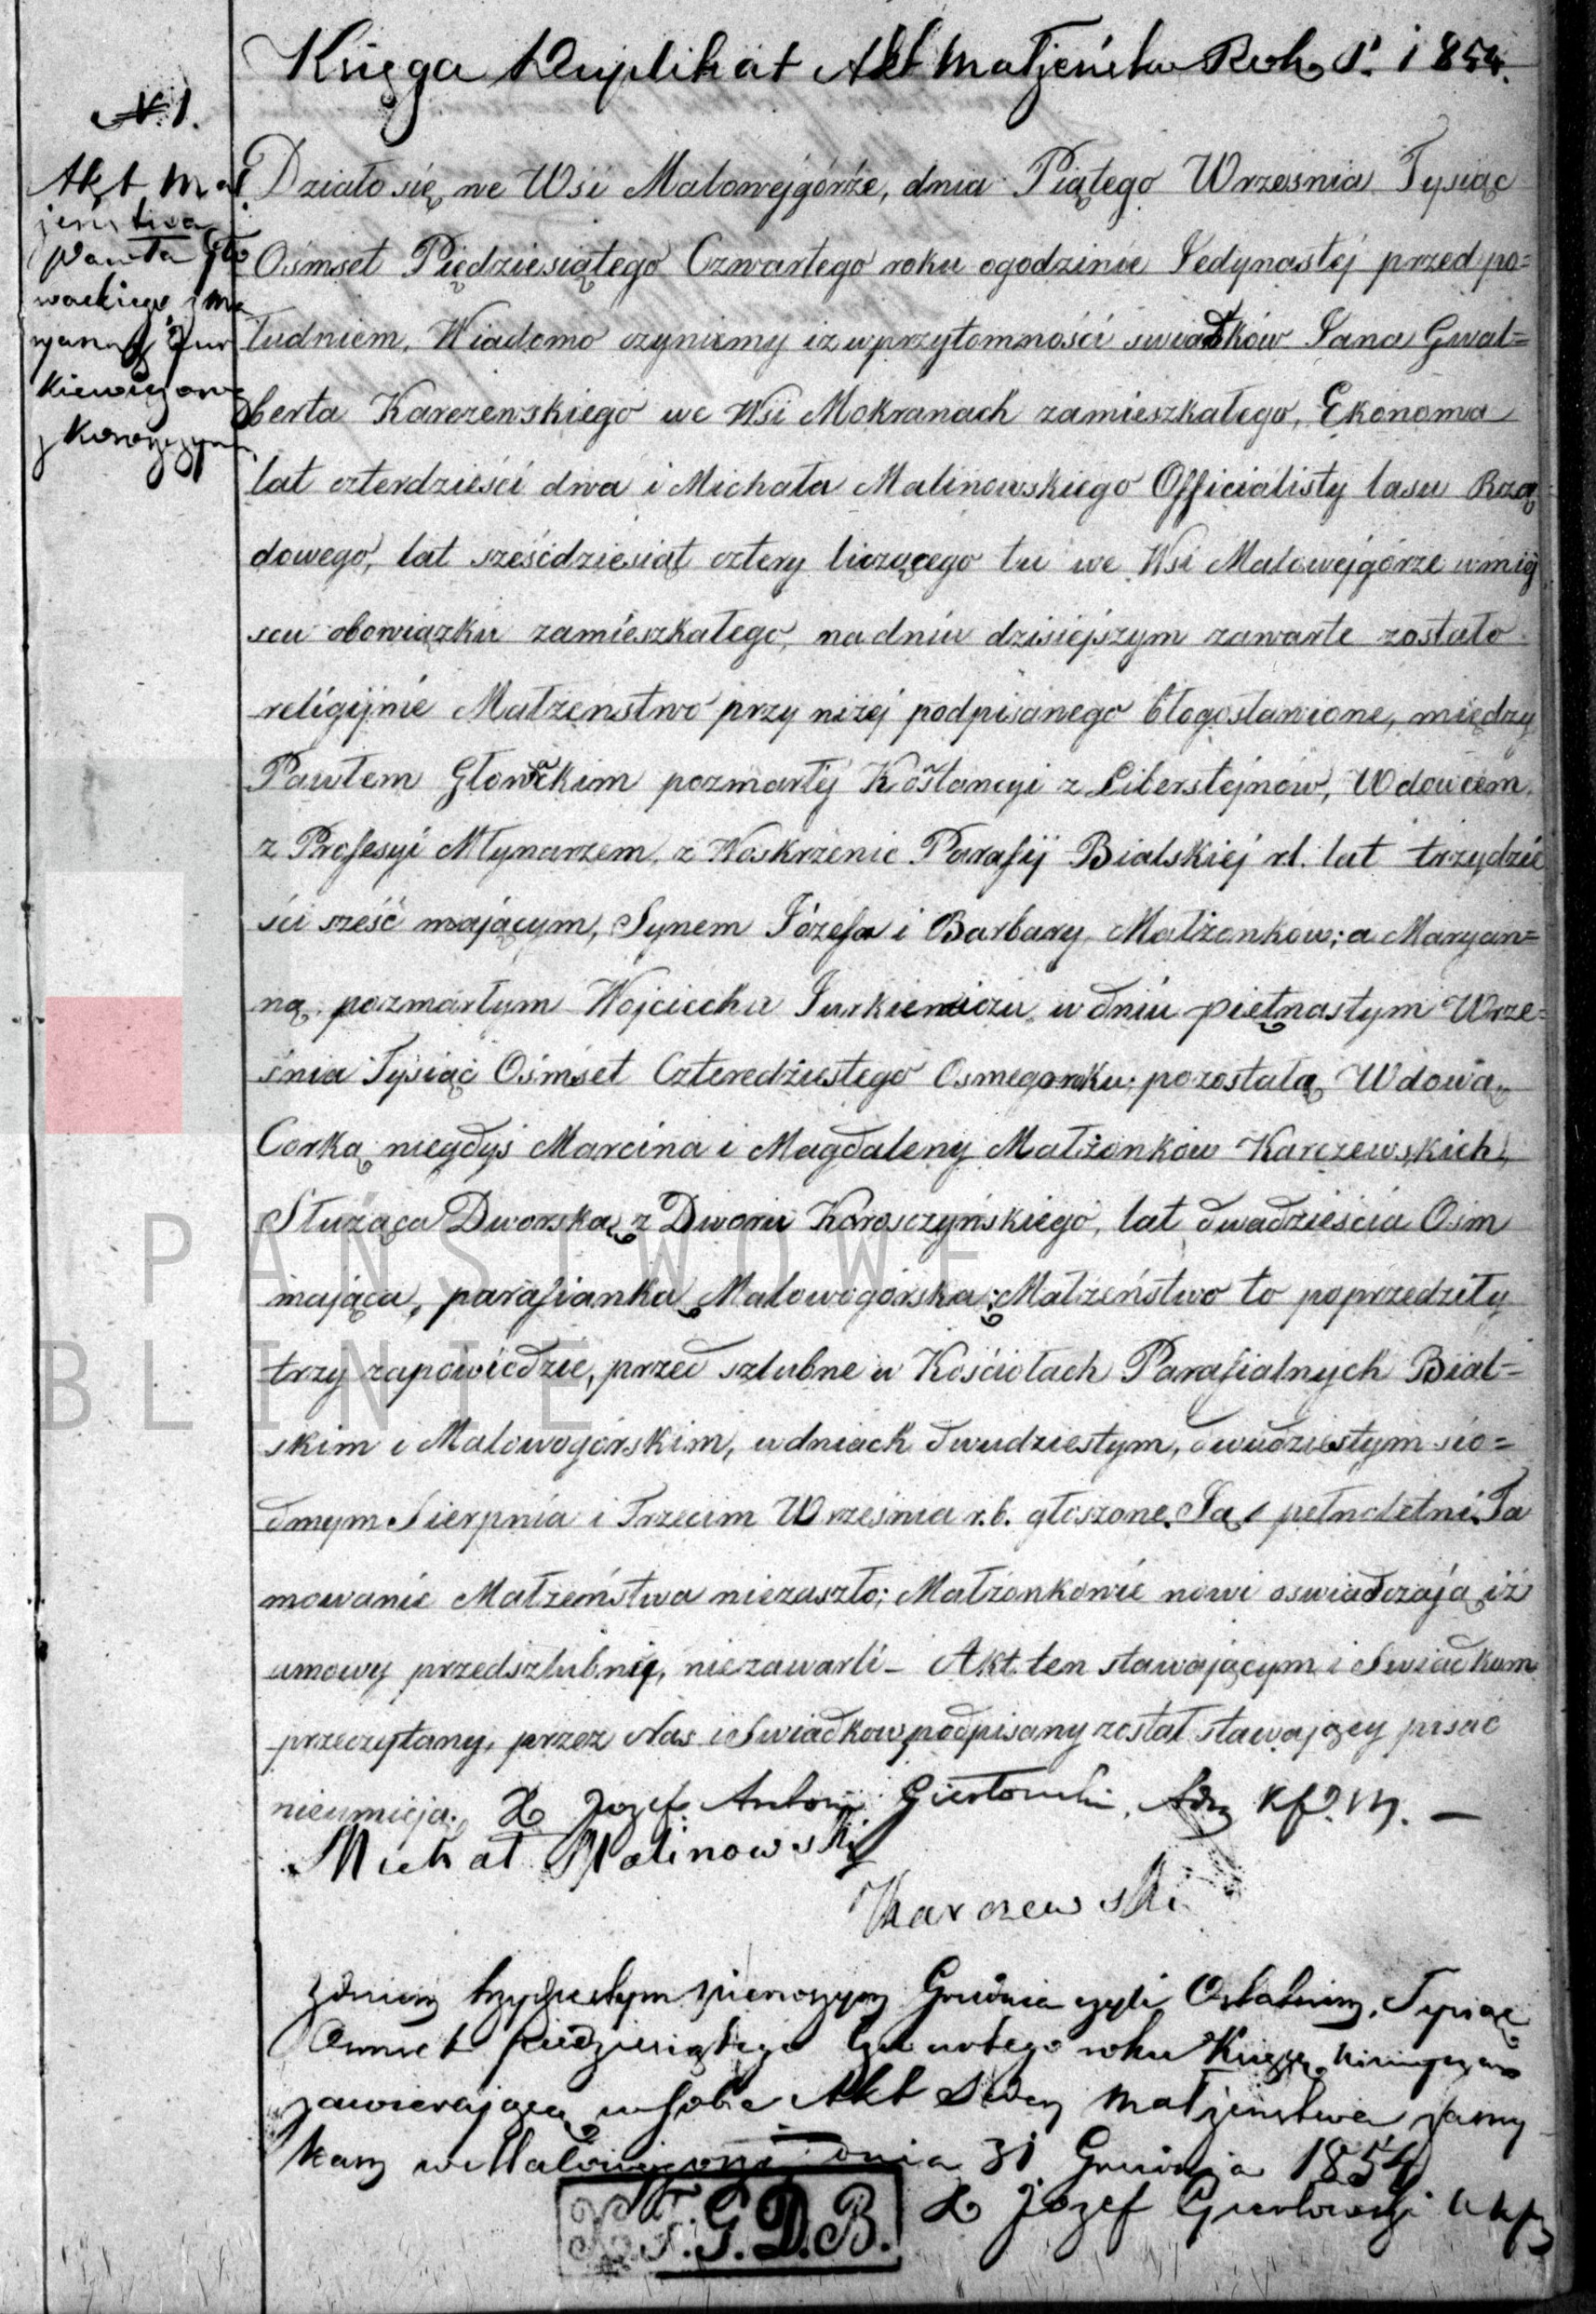 Księga Duplikat Akt Małżeństw Roku P. 1854.
N. 1.
Akt Mał
żeństwa
Pawła Gło
wackiego i Ma
ryanny Jur
kiewiczowej
z Koroszczyna
Działo się we Wsi Malowejgórze, dnia Piątego Wrzesnia Tysiąc
Ośmset Piędziesiątego Czwartego roku ogodzinie Jedynastéj przed po=
łudniem. Wiadomo czyniemy iz wprzytomności swiadków Jana Gwal=
berta Karczewskiego we Wsi Mokranach zamieszkałego, Ekonoma
lat czterdzieści dwa i Michała Malinowskiego Officialisty lasu Rzą
dowego, lat sześcdziesiąt cztery liczącego tu we Wsi Malowejgórze wmiéj
scu obowiązku zamieszkałego, nadniu dzisiejszym zawarte zostało
religijnie Małżenstwo przy niżej podpisanego błogosławione, między
Pawłem Głowckim pozmarłéj Kostancyi z Liberstejnów, Wdowcem,
z Profesyi Młynarzem, z Woskrzenic Parafij Bialskiéj rl. lat trzydzie
ści sześć mającym, Synem Józefa i Barbary Małżonków; a Maryan=
ną pozmarłym Wojciechu Jurkiewiczu w dniu pietnastym Wrze=
śnia Tysiąc Ośmset Czteredziestego Osmego roku pozostałą Wdową,
Corką niegdyś Marcina i Magdaleny Małżonków Karczewskich,
Służąca Dworską z Dworu Koroszczyńskiego, lat dwadzieścia Ośm
mająca, parafianką Malowogórską; Małżeństwo to poprzedziły
trzy zapowiedzie, przed szlubne w Kościołach Parafialnych Bial=
skim i Malowogórskim, w dniach dwudziestym, dwudziestym sió=
dmym Sierpnia i Trzecim Września r.b. głoszone. Są pełnoletni. Ta
mowanie Małżeństwa niezaszło; Małżonkowie nowi oswiadczają iż
umowy przedszlubnéj, niezawarli - Akt ten stawającym i Swiadkom
przeczytany, przez Nas i Swiadkow podpisany został stawający pisać
nieumieją. X Jozef Antoni Giertowski, Adm K.P.M. -
Michał Malinowski
Karczewski
Zdniem trzydziestym pierwszym Grudnia czyli Ostatnim, Tysiąc
Osmset piedziesiątego Czwartego roku Księgę ninieyszą
zawierającą wsobie Akt Jeden Małżeństwa zamy
kam w Malowejgórze dnia 31 Grudnia 1854
X Jozef Giertowski
X. J. G. D. B.
PAŃSTWOWE
BLINIE